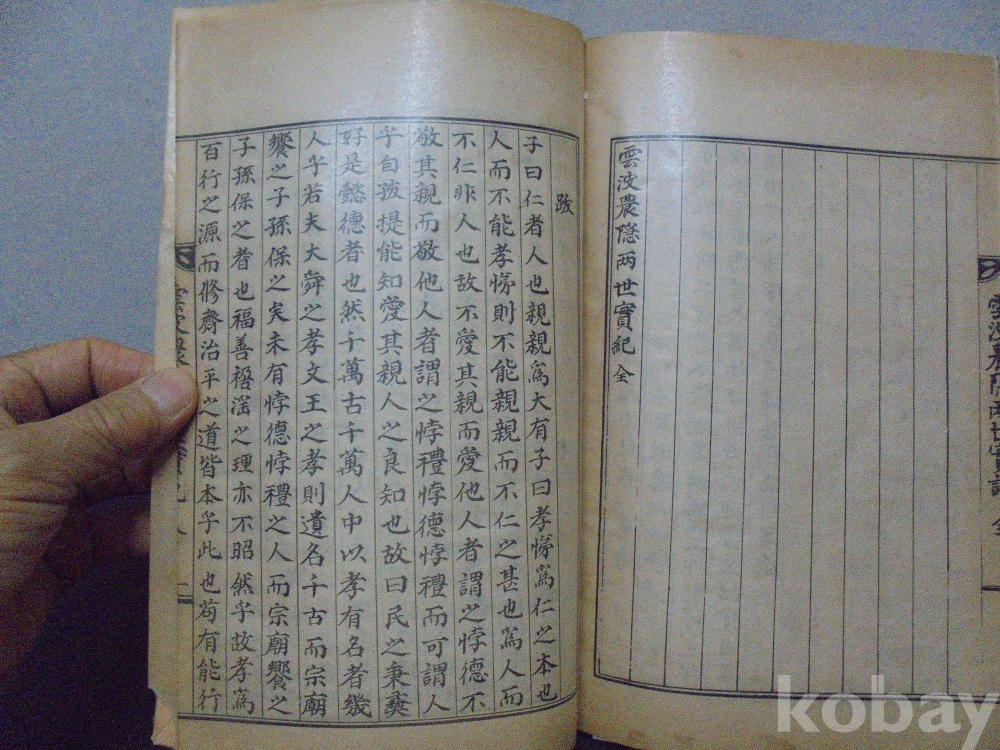 雲波農隱两世實紀 全
跋
子曰仁者人也親親爲大有子曰孝悌爲仁之本也
人而不能孝悌則不能親親而不仁之甚也爲人而
不仁非人也故不愛其親而愛他人者謂之悖德不
敬其親而敬他人者謂之悖禮悖德悖禮而可謂人
乎自孩提能知愛其親人之良知也故曰民之秉彛
好是懿德者也然千萬古千萬人中以孝有名者幾
人乎若夫大舜之孝文王之孝則遺名千古而宗廟
饗之子孫保之矣未有悖德悖禮之人而宗廟饗之
子孫保之者也福善禍淫之理亦不昭然乎故孝爲
百行之源而修齊治平之道皆本乎此也苟有能行
kobay